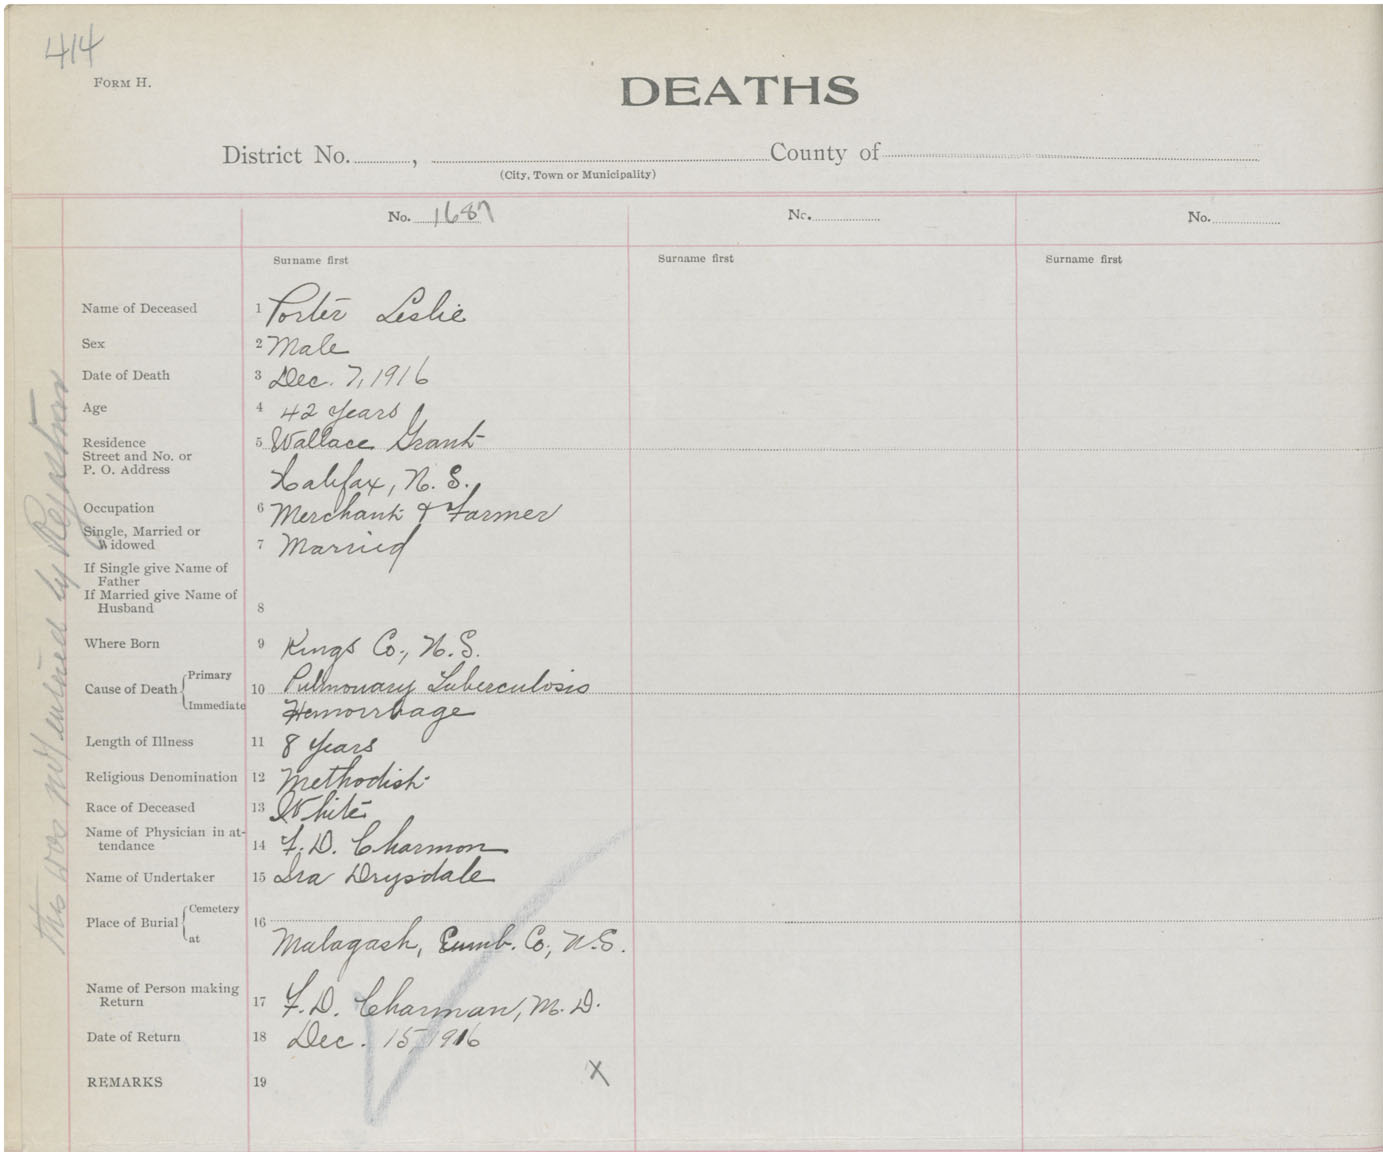 414
FORM H.
DEATHS
District No. ........., .................... County of ....................
(City, Town or Municipality)
No. 1687 No. ........ No. ........
Surname first Surname first Surname first
Name of Deceased 1 Porter Leslie
Sex 2 Male
Date of Death 3 Dec. 7, 1916
Age 4 42 Years
Residence 5 Wallace Grant
Street and No. or
P. O. Address Halifax, N. S.
Occupation 6 Merchant & Farmer
Single, Married or
Widowed 7 Married
If Single give Name of
Father
If Married give Name of
Husband 8
Where Born 9 Kings Co., N.S.
Cause of Death Primary 10 Pulmonary Tuberculosis
Immediate Hemorrhage
Length of Illness 11 8 Years
Religious Denomination 12 Methodist
Race of Deceased 13 White
Name of Physician in at-
tendance 14 F. D. Charmon
Name of Undertaker 15 Ira Drysdale
Place of Burial Cemetery 16
at Malagash, Cumb. Co., N.S.
Name of Person making
Return 17 F. D. Charman, M. D.
Date of Return 18 Dec. 15 1916
REMARKS 19 X
This was not entered by Registrar